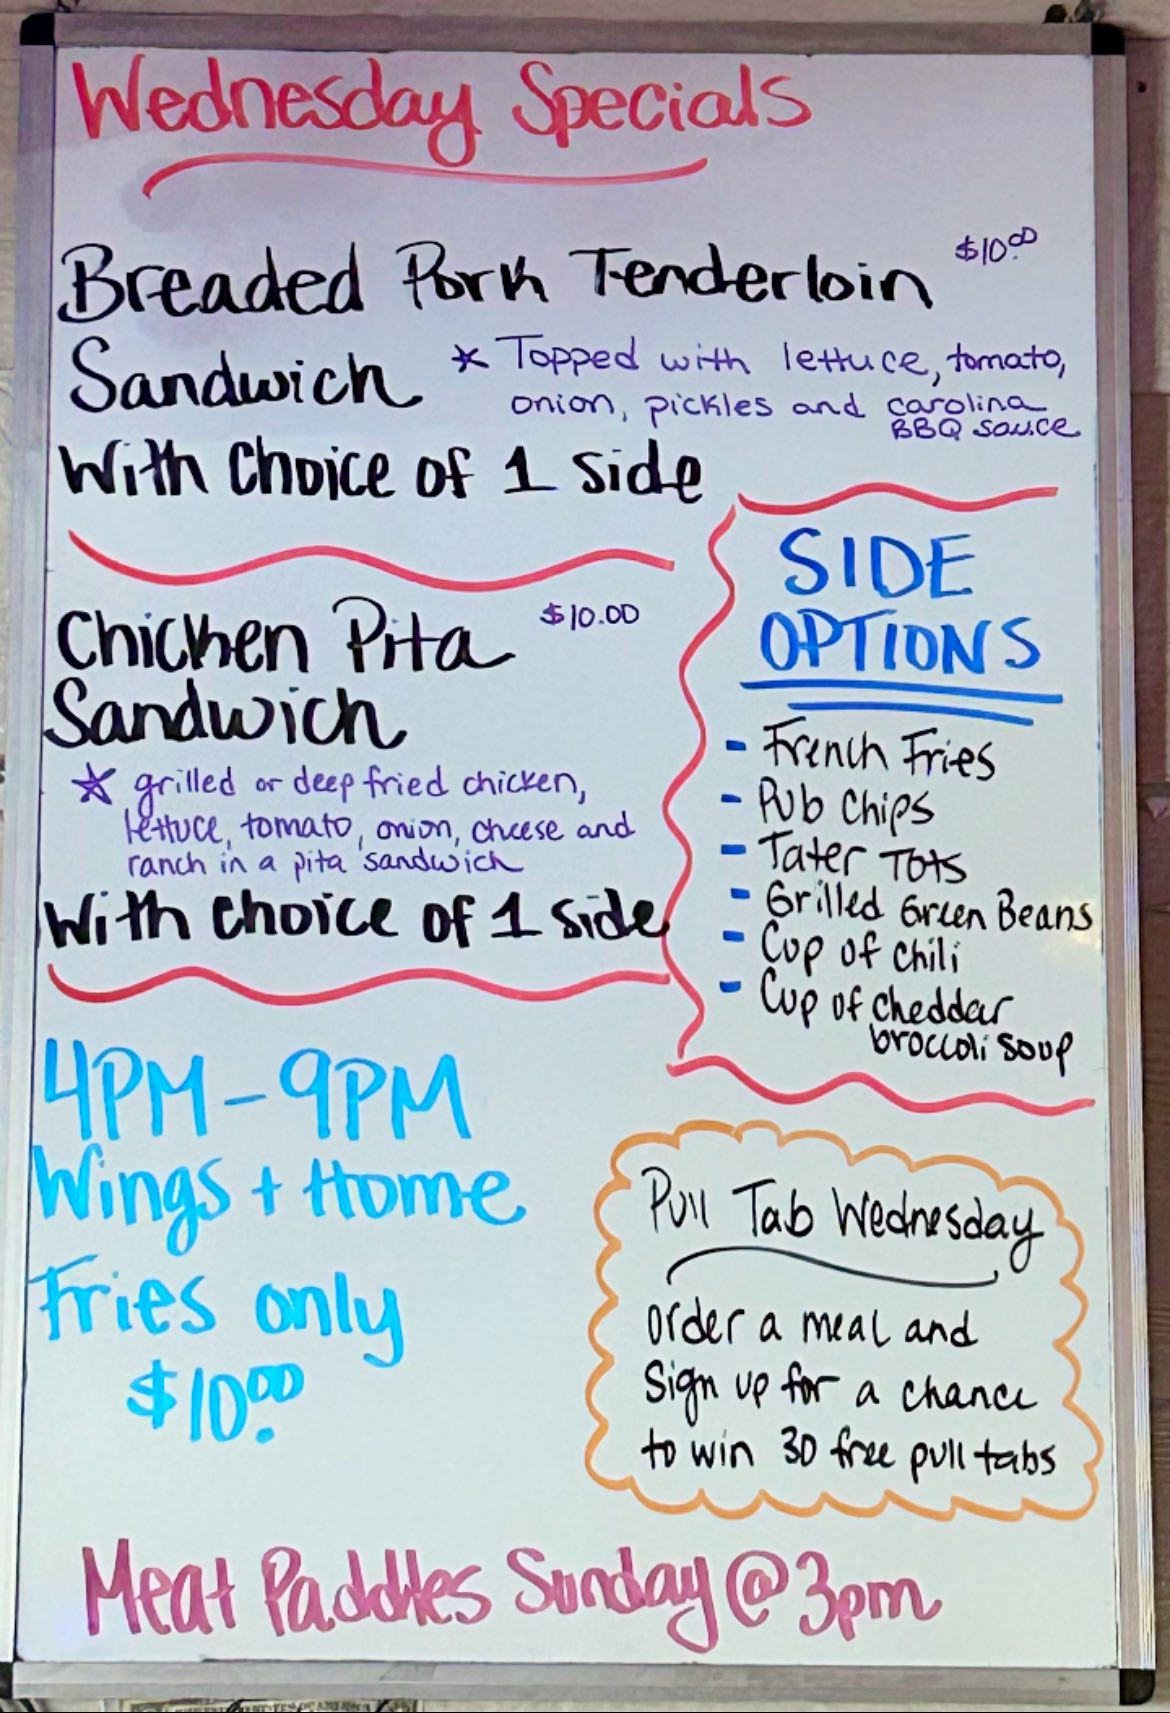 Wednesday Specials
Breaded Pork Tenderloin $10.00
Sandwich
* Topped with lettuce, tomato,
onion, pickles and carolina
BBQ sauce
With Choice of 1 side
Chicken Pita $10.00
Sandwich
* grilled or deep fried chicken,
lettuce, tomato, onion, cheese and
ranch in a pita sandwich
With choice of 1 side
SIDE
OPTIONS
- French Fries
- Pub Chips
- Tater Tots
- Grilled Green Beans
- Cup of chili
- Cup of cheddar
broccoli soup
4PM - 9PM
Wings + Home
Fries only
$10.00
Pull Tab Wednesday
order a meal and
Sign up for a chance
to win 30 free pull tabs
Meat Paddles Sunday @ 3pm